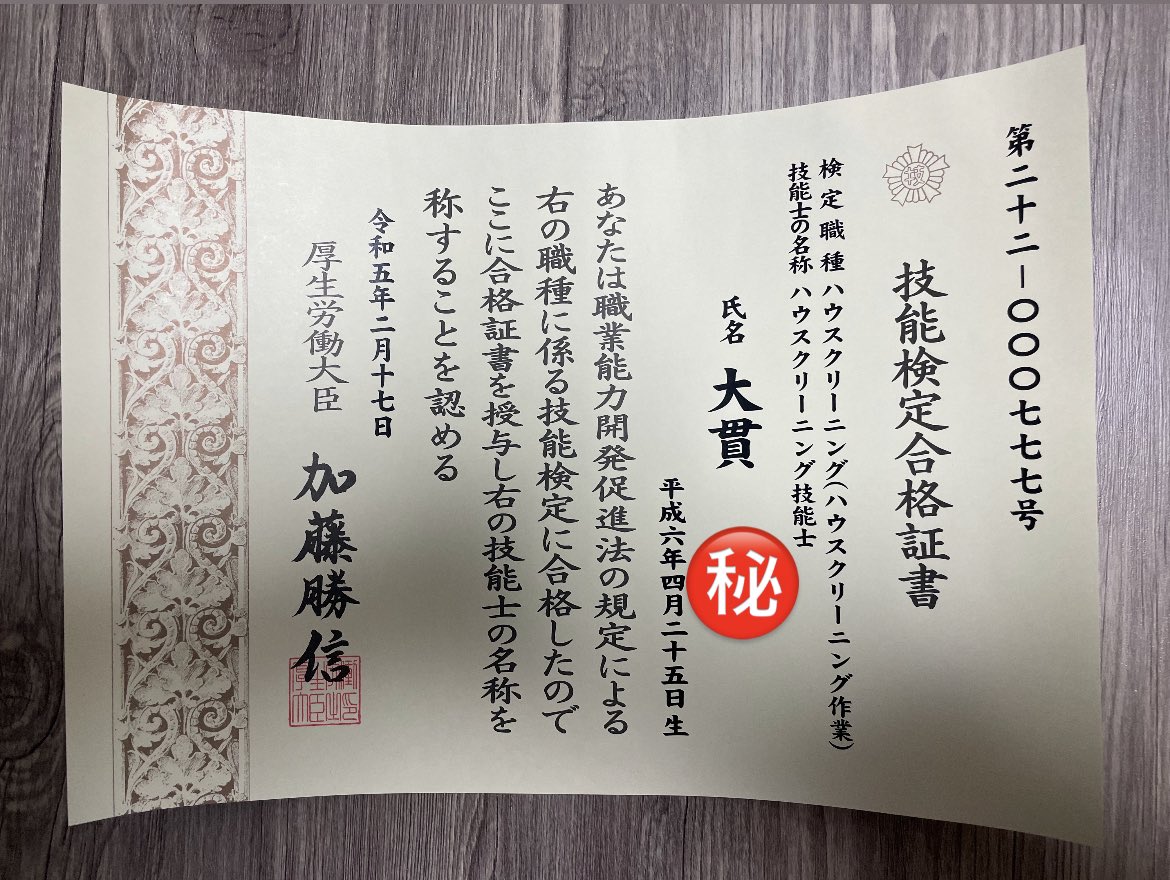 第二十二－〇〇〇七七七号
技
技能検定合格証書
検定職種 ハウスクリーニング(ハウスクリーニング作業)
技能士の名称 ハウスクリーニング技能士
氏名 大貫
秘
平成六年四月二十五日生
あなたは職業能力開発促進法の規定による
右の職種に係る技能検定に合格したので
ここに合格証書を授与し右の技能士の名称を
称することを認める
令和五年二月十七日
厚生労働大臣 加藤勝信